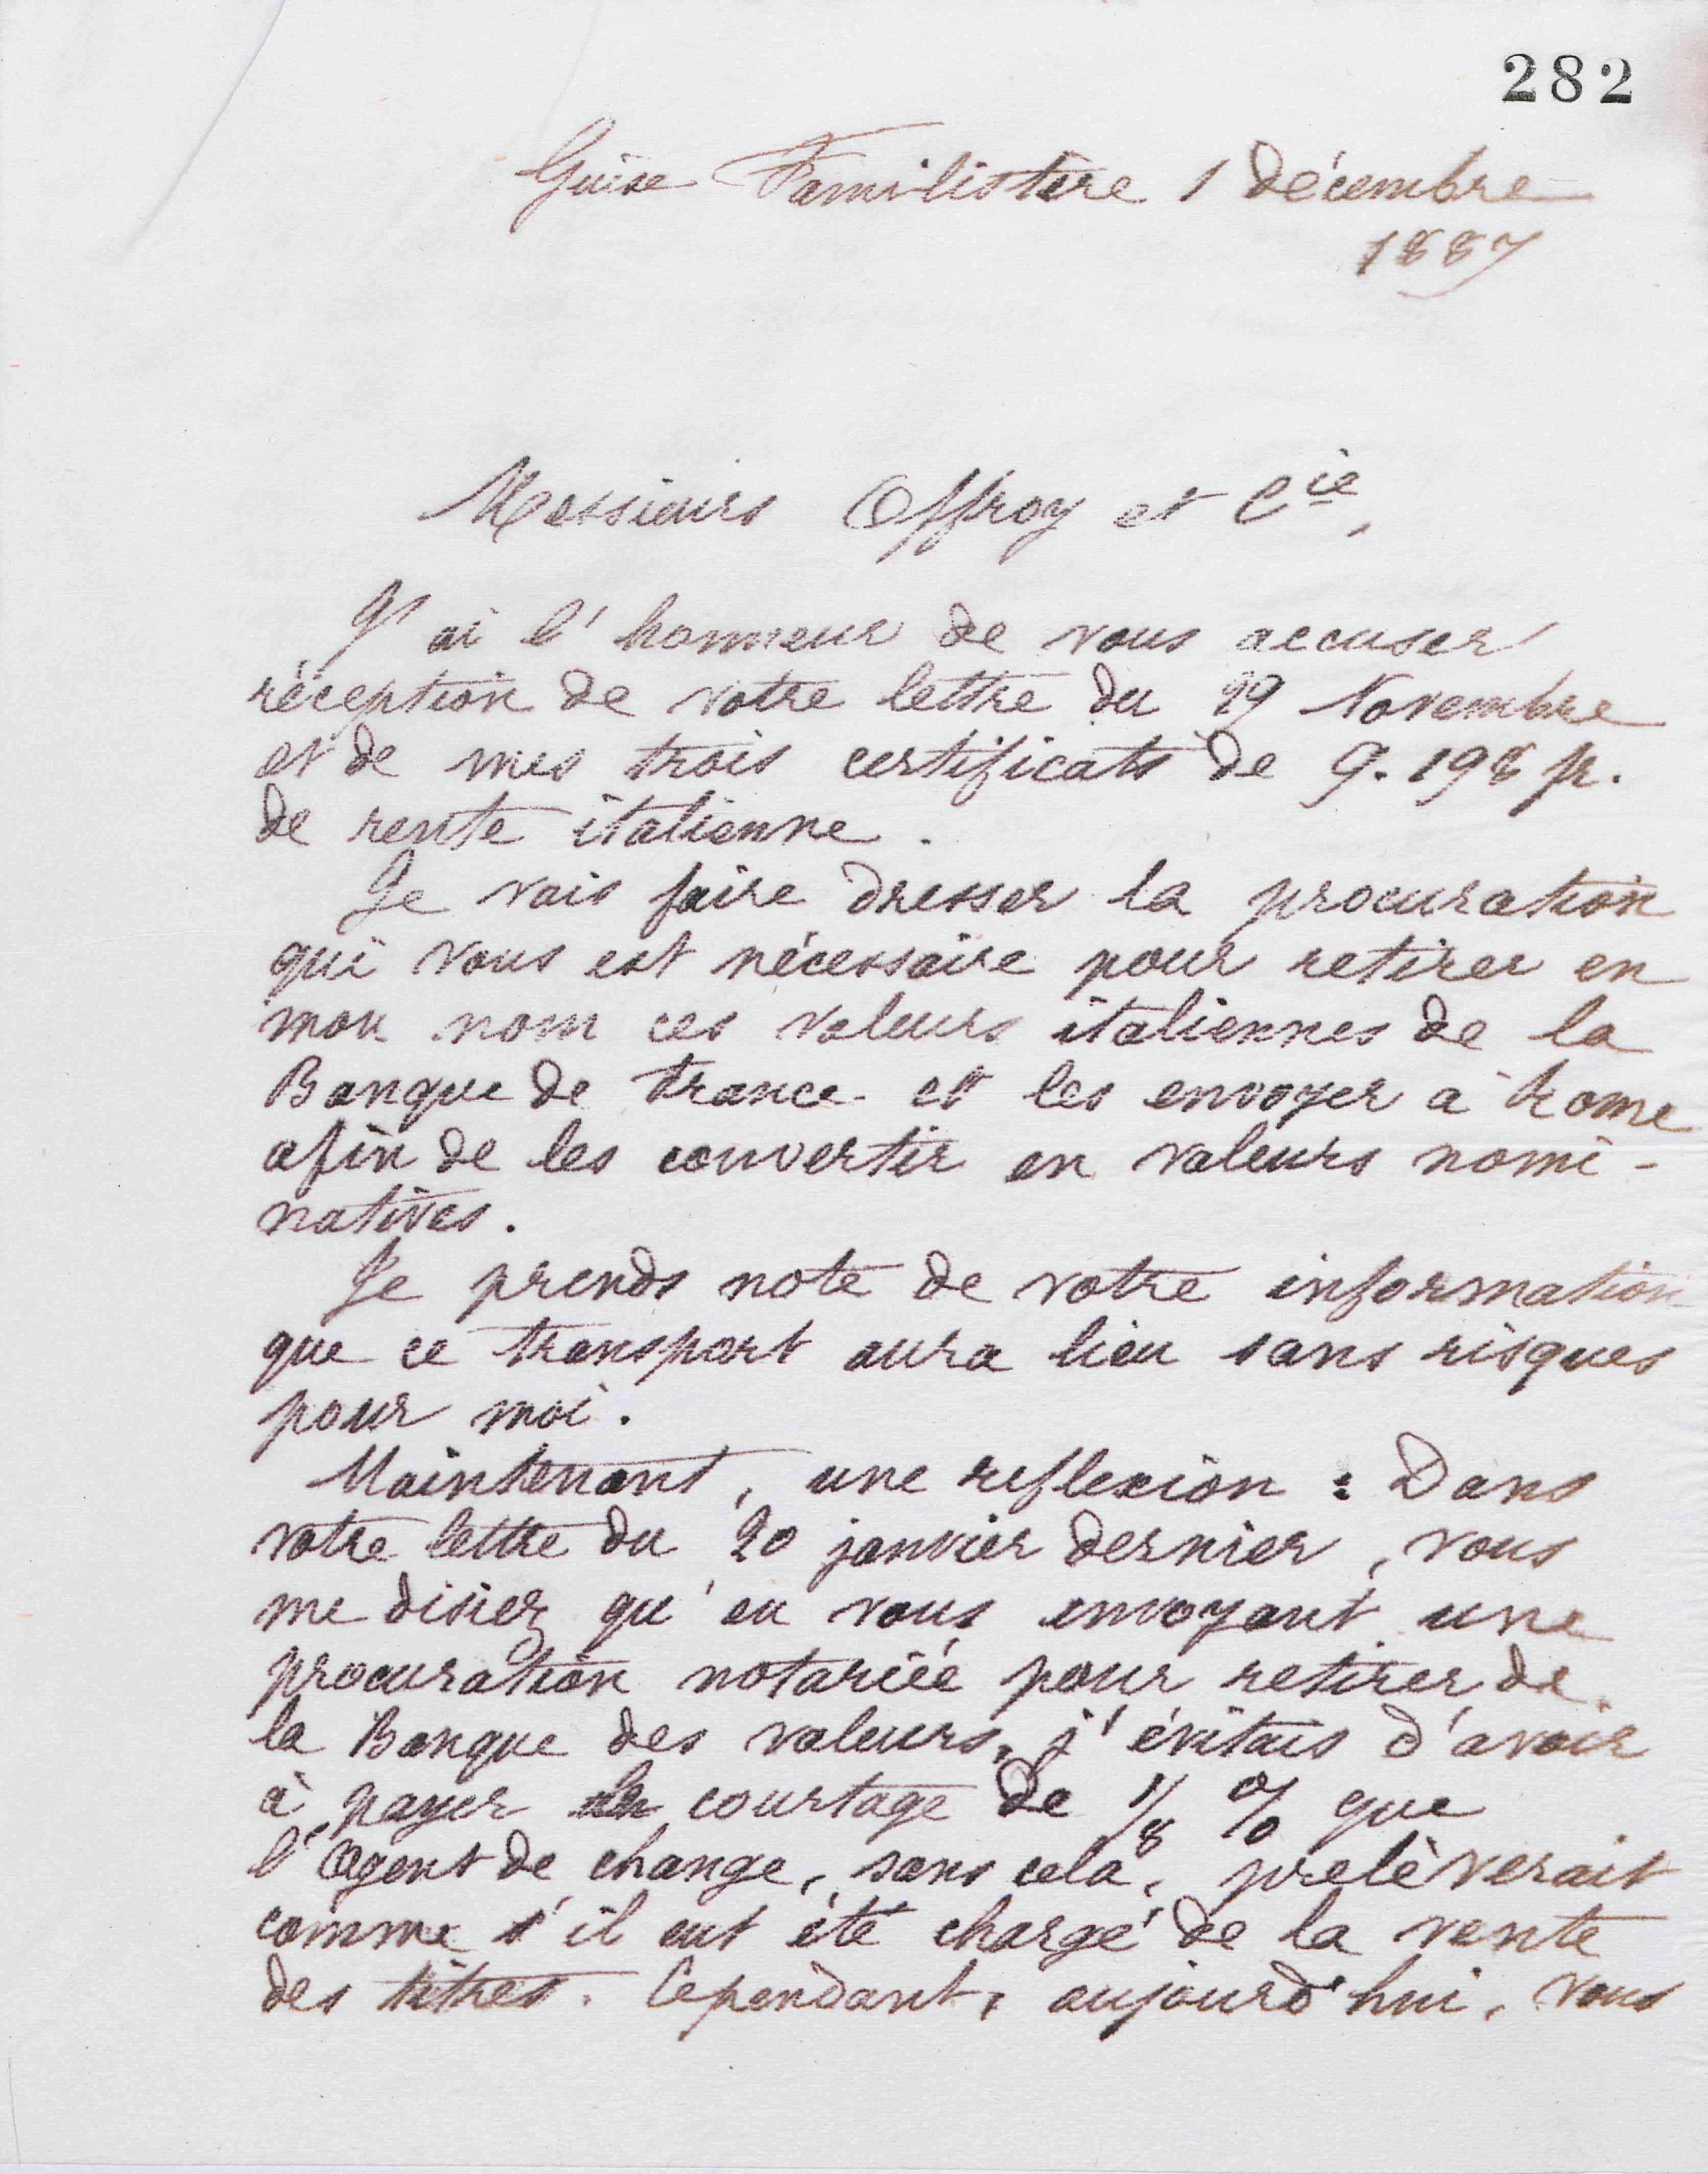 282
Guise Familistère 1 décembre
1887
Messieurs Offroy et Cie,
J'ai l'honneur de vous accuser
réception de votre lettre du 29 Novembre
et de mes trois certificats de 9.198 fr.
de rente italienne.
Je vais faire dresser la procuration
qui vous est nécessaire pour retirer en
mon nom ces valeurs italiennes de la
Banque de France et les envoyer à Rome
afin de les convertir en valeurs nomi-
natives.
Je prends note de votre information
que ce transport aura lieu sans risques
pour moi.
Maintenant, une reflexion : Dans
votre lettre du 20 janvier dernier, vous
me disiez qu'en vous envoyant une
procuration notariée pour retirer de
la Banque des valeurs, j'évitais d'avoir
à payer le courtage de 1/8 % que
l'Agent de change, sans cela, prelèverait
comme s'il eut été chargé de la vente
des titres. Cependant, aujourd'hui, vous